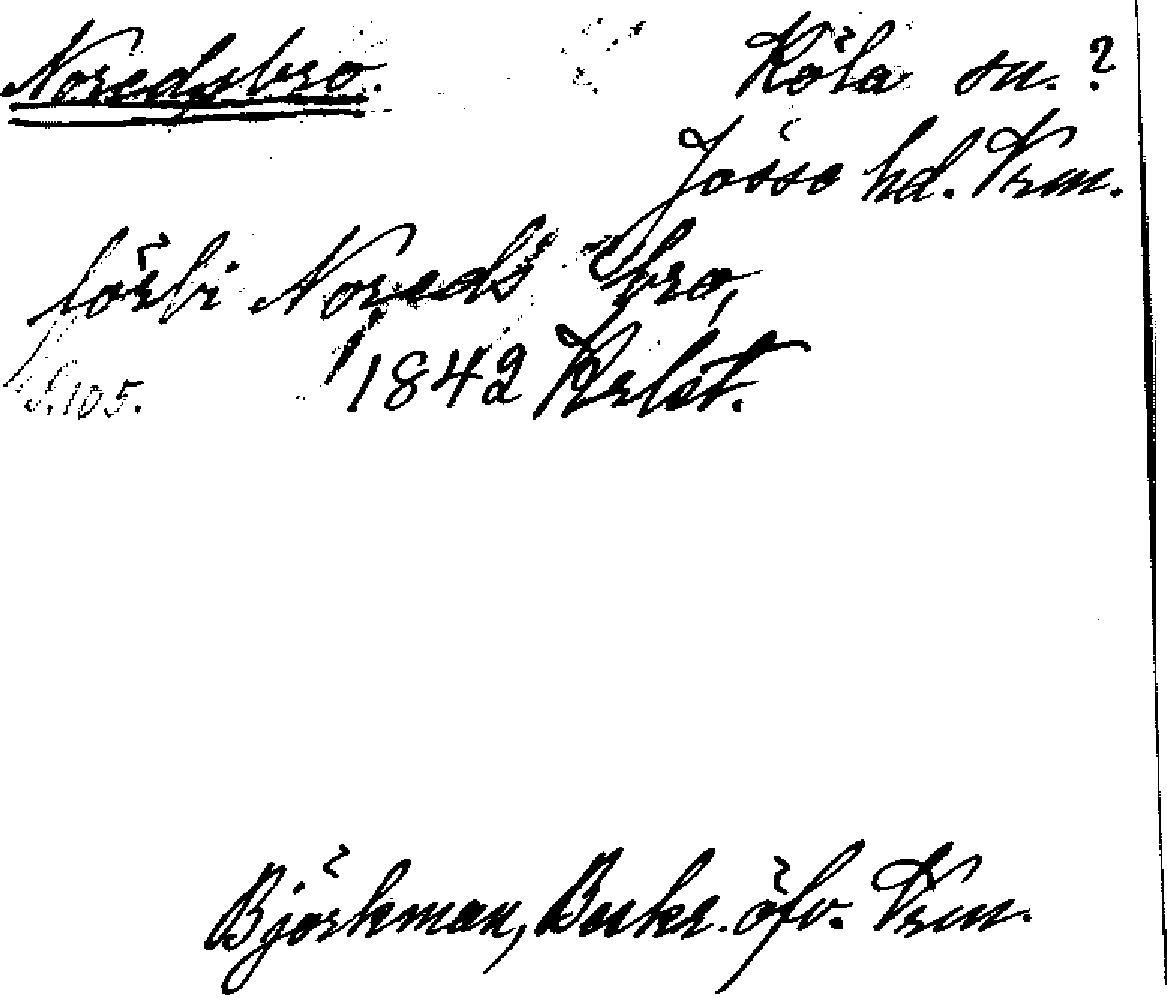 Noredsbro. Köla sn.?
Jösse hd. Vrm.
förbi Noreds bro,
S. 105. 1842 Krlst.
Björkman, Beskr. öfv. Vrm.